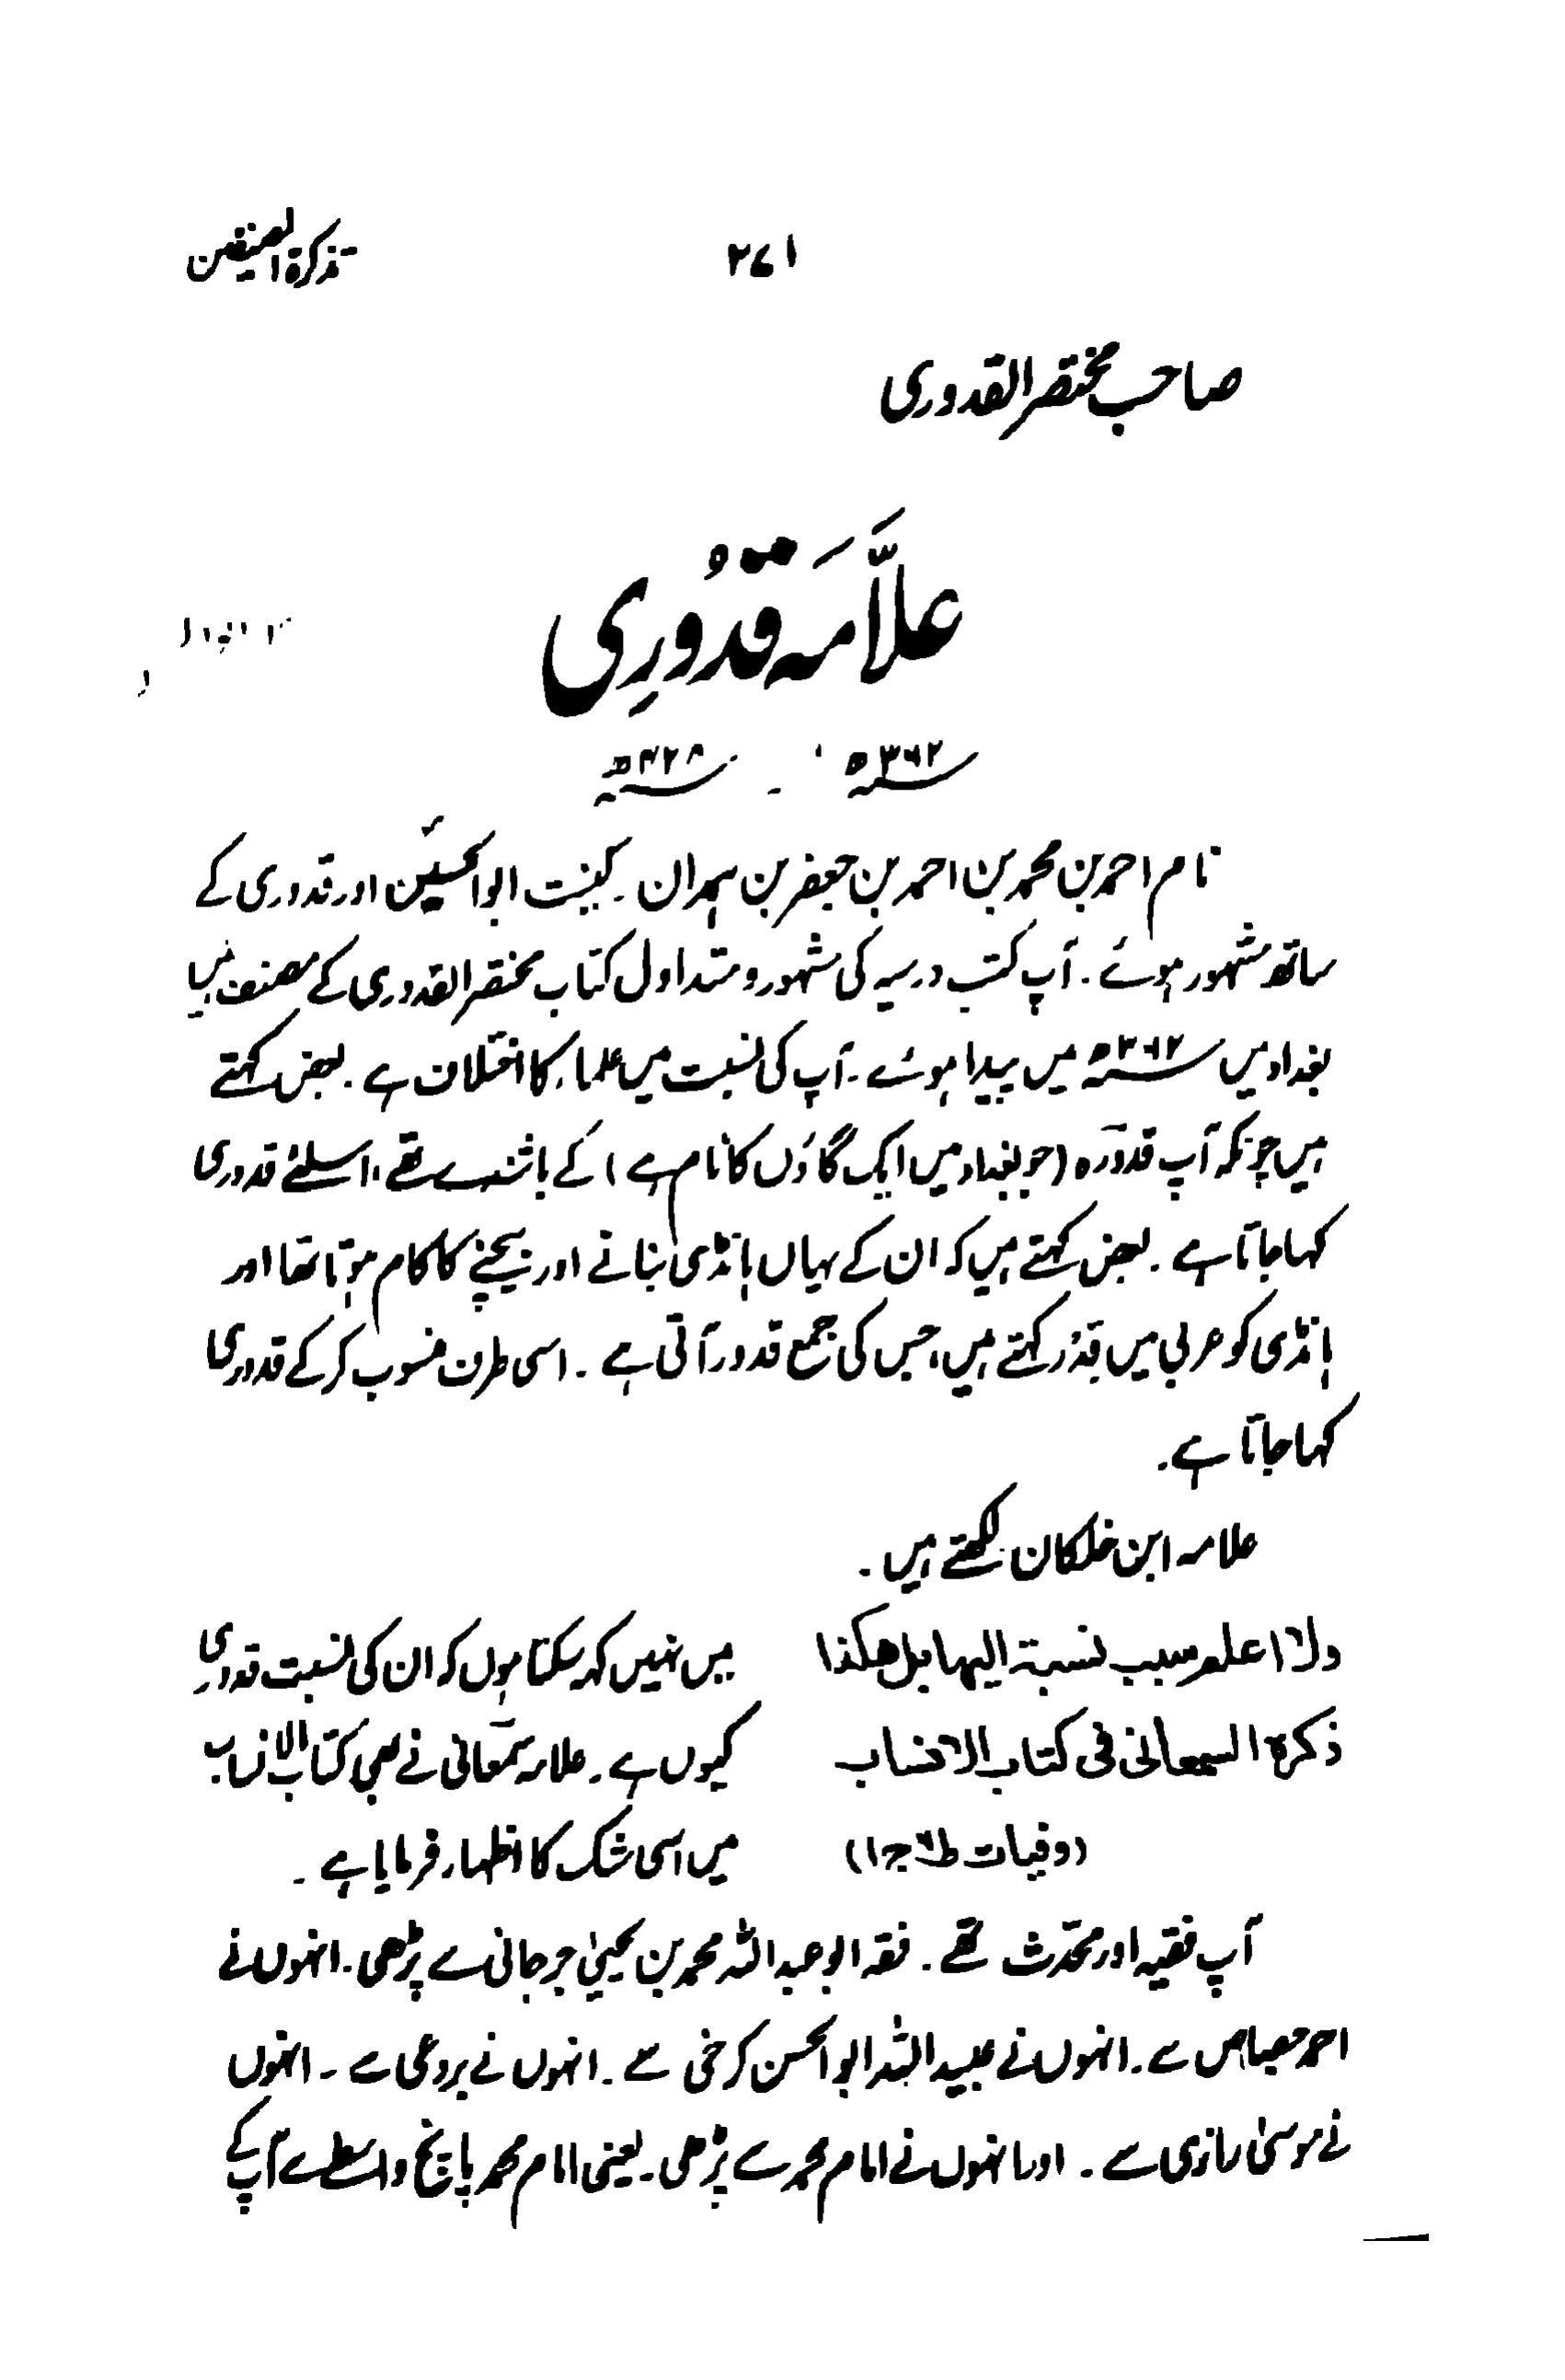 تذکرۃ المصنفین
۲۷۱
صاحب مختصر القدوری
علاَّمَہ قدُوْرِی
۳۶۲ھ - ۴۲۸ھ
نام احمد بن محمد بن احمد بن جعفر بن ہمدان ۔ کنیت ابوالحسین اور قدوری کے
ساتھ مشہور ہوئے ۔ آپ کتب درسیہ کی مشہور و متداول کتاب مختصر القدوری کے مصنف ہیں
بغداد میں ۳۶۲ھ میں پیدا ہوئے ۔ آپ کی نسبت میں علماء کا اختلاف ہے ۔ بعض کہتے
ہیں چونکہ آپ قدورہ (جو بغداد میں ایک گاؤں کا نام ہے) کے باشندے تھے ، اسلئے قدوری
کہا جاتا ہے ۔ بعض کہتے ہیں کہ ان کے یہاں ہانڈی بنانے اور بیچنے کا کام ہوتا تھا اور
ہانڈی کو عربی میں قِدْر کہتے ہیں ، جس کی جمع قدور آتی ہے ۔ اسی طرف منسوب کر کے قدوری
کہا جاتا ہے ۔
علامہ ابن خلکان لکھتے ہیں ۔
ولا اعلم سبب نسبۃ الیہا بل ھکذا
ذکرہ السمعانی فی کتاب الانساب
(وفیات ج۱)
میں نہیں کہہ سکتا ہوں کہ ان کی نسبت قدوری
کیوں ہے ۔ علامہ سمعانی نے بھی کتاب الانساب
میں اسی شک کا اظہار فرمایا ہے ۔
آپ فقیہ اور محدث تھے ۔ فقہ ابو عبداللہ محمد بن یحییٰ جرجانی سے پڑھی ۔ انہوں نے
احمد جصاص سے ۔ انہوں نے عبید اللہ ابو الحسن کرخی سے ۔ انہوں نے بردعی سے ۔ انہوں
نے موسیٰ رازی سے ۔ اور انہوں نے امام محمد سے پڑھی ۔ یعنی امام محمد پانچ واسطے سے آپ کے